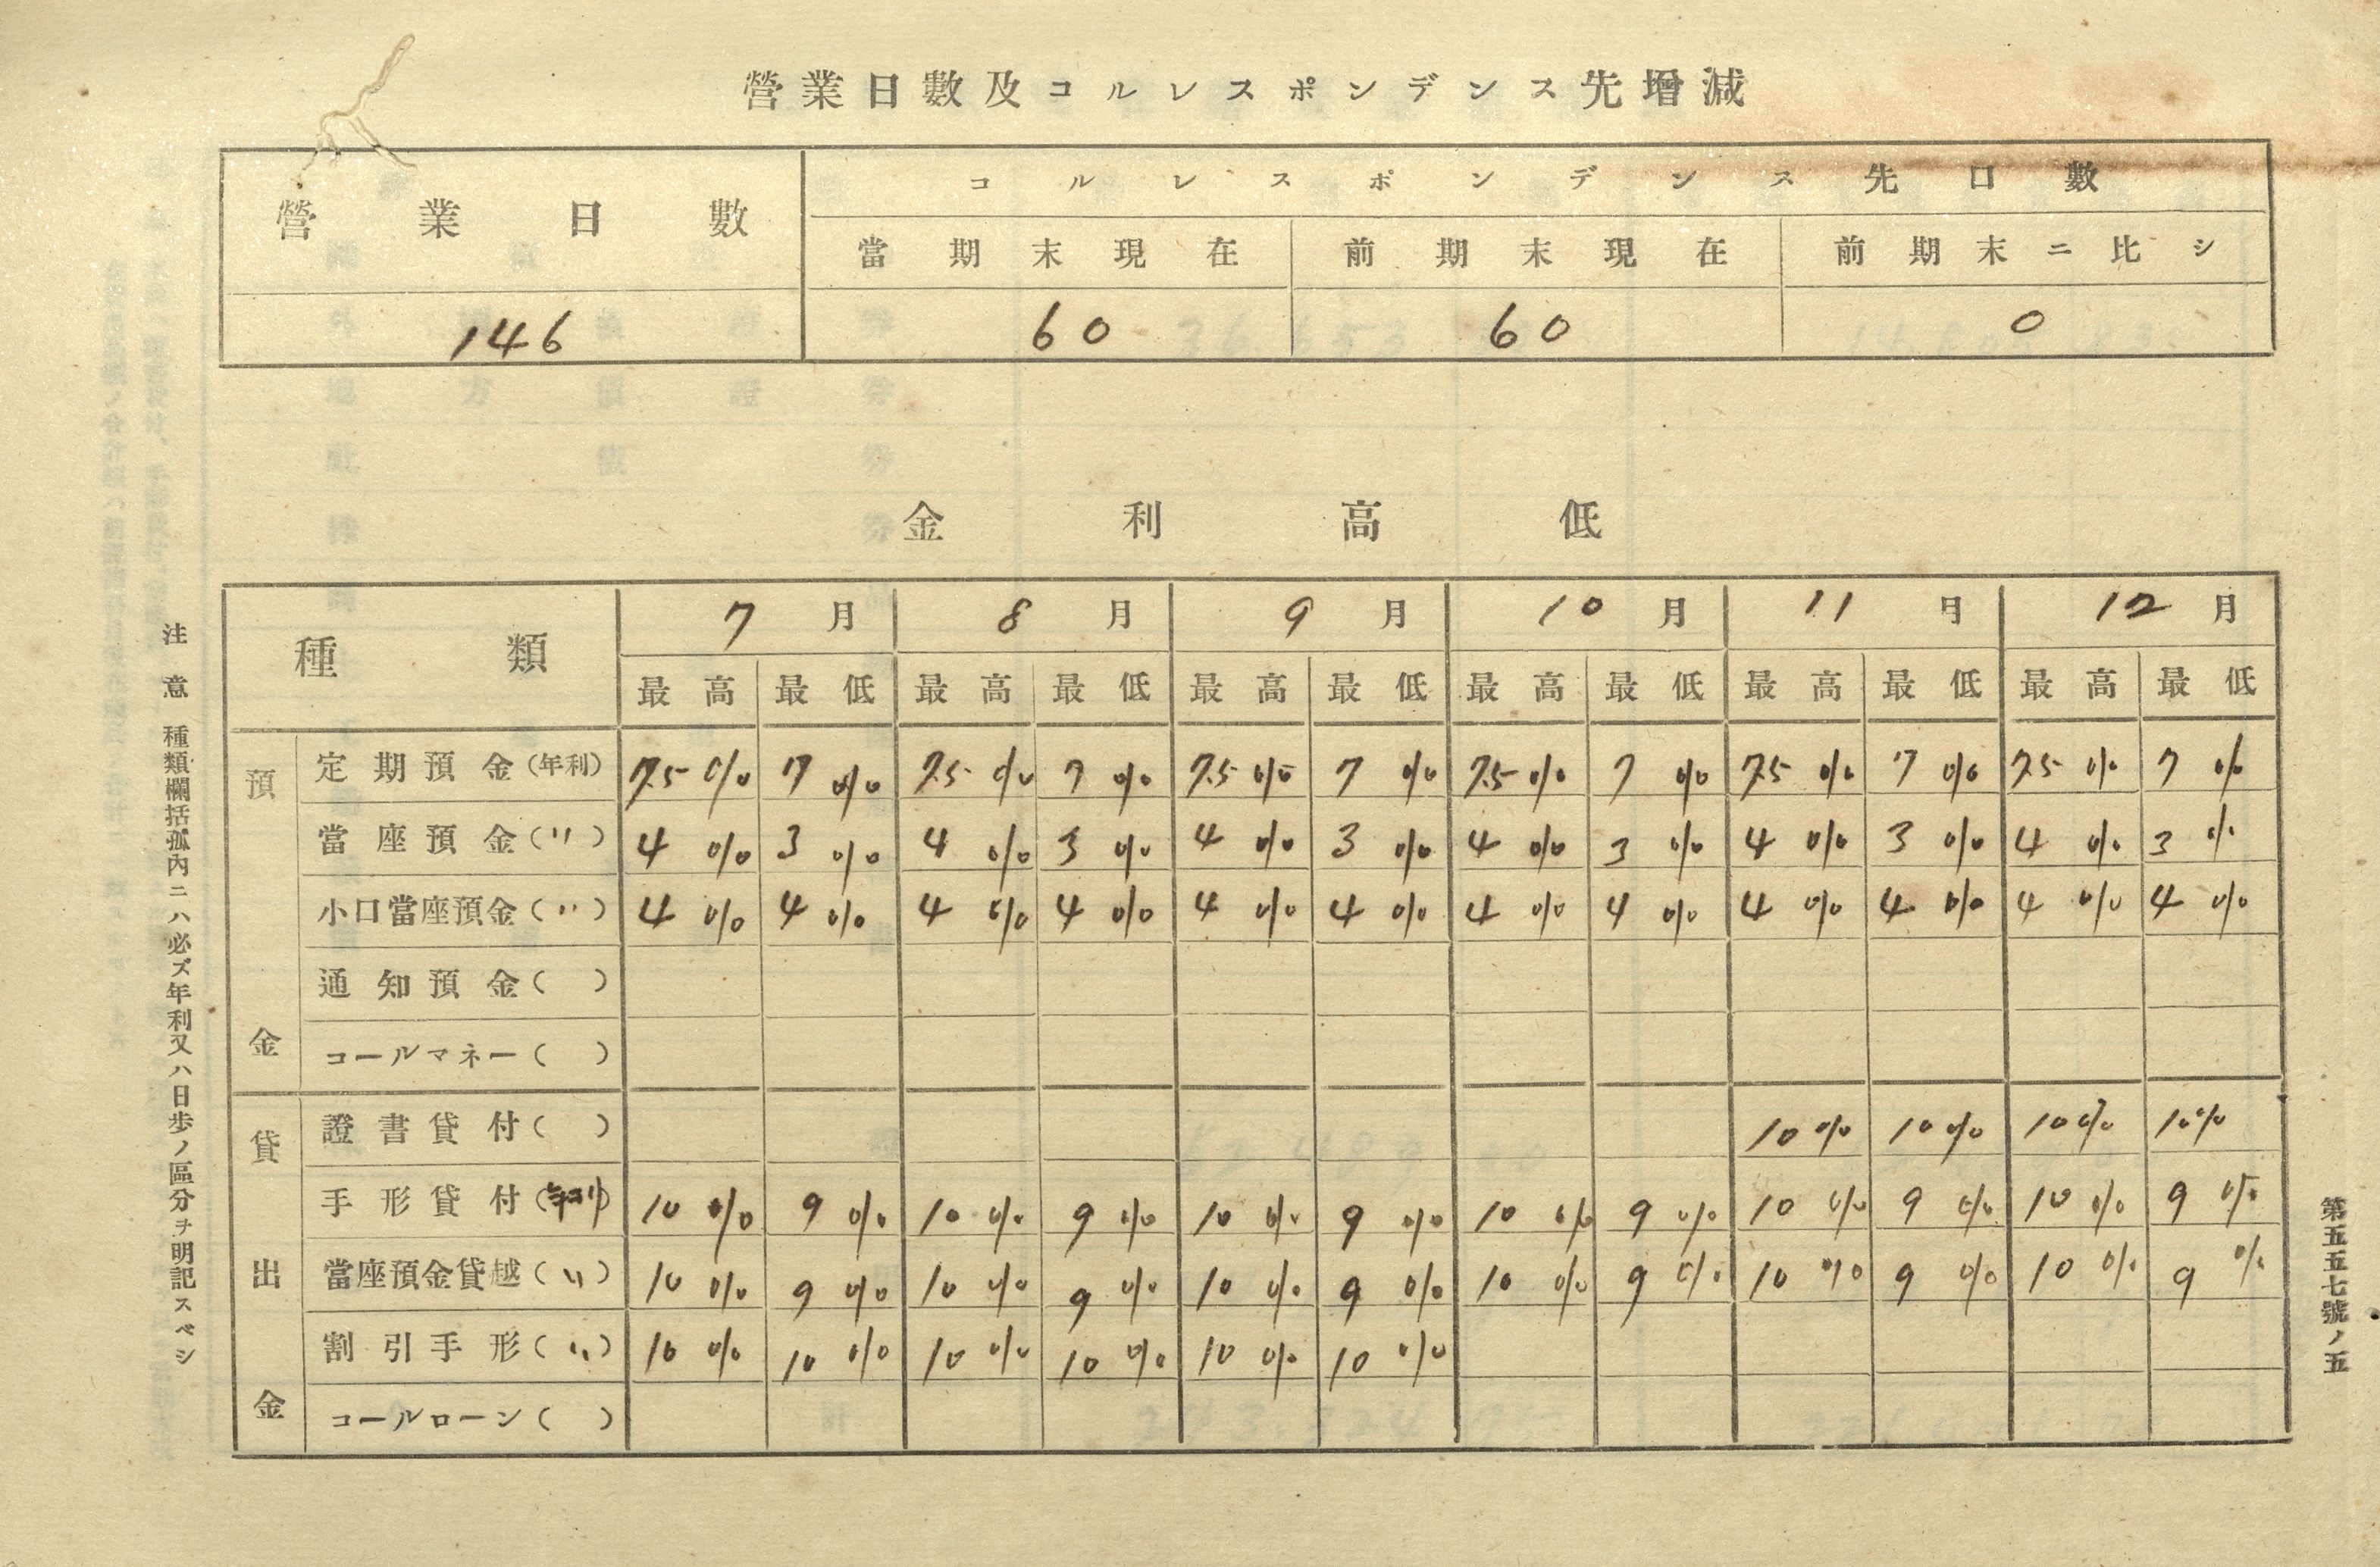 營業日數及コルレスポンデンス先增減
營業日數 コルレスポンデンス先口數
當期末現在 前期末現在 前期末ニ比シ
146 60 60 0
金利高低
種類 7月 8月 9月 10月 11月 12月
最高 最低 最高 最低 最高 最低 最高 最低 最高 最低 最高 最低
預金
定期預金(年利) 7.5% 7% 7.5% 7% 7.5% 7% 7.5% 7% 7.5% 7% 7.5% 7%
當座預金(〃) 4% 3% 4% 3% 4% 3% 4% 3% 4% 3% 4% 3%
小口當座預金(〃) 4% 4% 4% 4% 4% 4% 4% 4% 4% 4% 4% 4%
通知預金( )
コールマネー( )
貸出金
證書貸付( ) 10% 10% 10% 10%
手形貸付 10% 9% 10% 9% 10% 9% 10% 9% 10% 9% 10% 9%
當座預金貸越(〃) 10% 9% 10% 9% 10% 9% 10% 9% 10% 9% 10% 9%
割引手形(〃) 10% 10% 10% 10% 10% 10%
コールローン( )
注意 種類欄括孤內ニハ必ズ年利又ハ日歩ノ區分ヲ明記スベシ
第五五七號ノ五